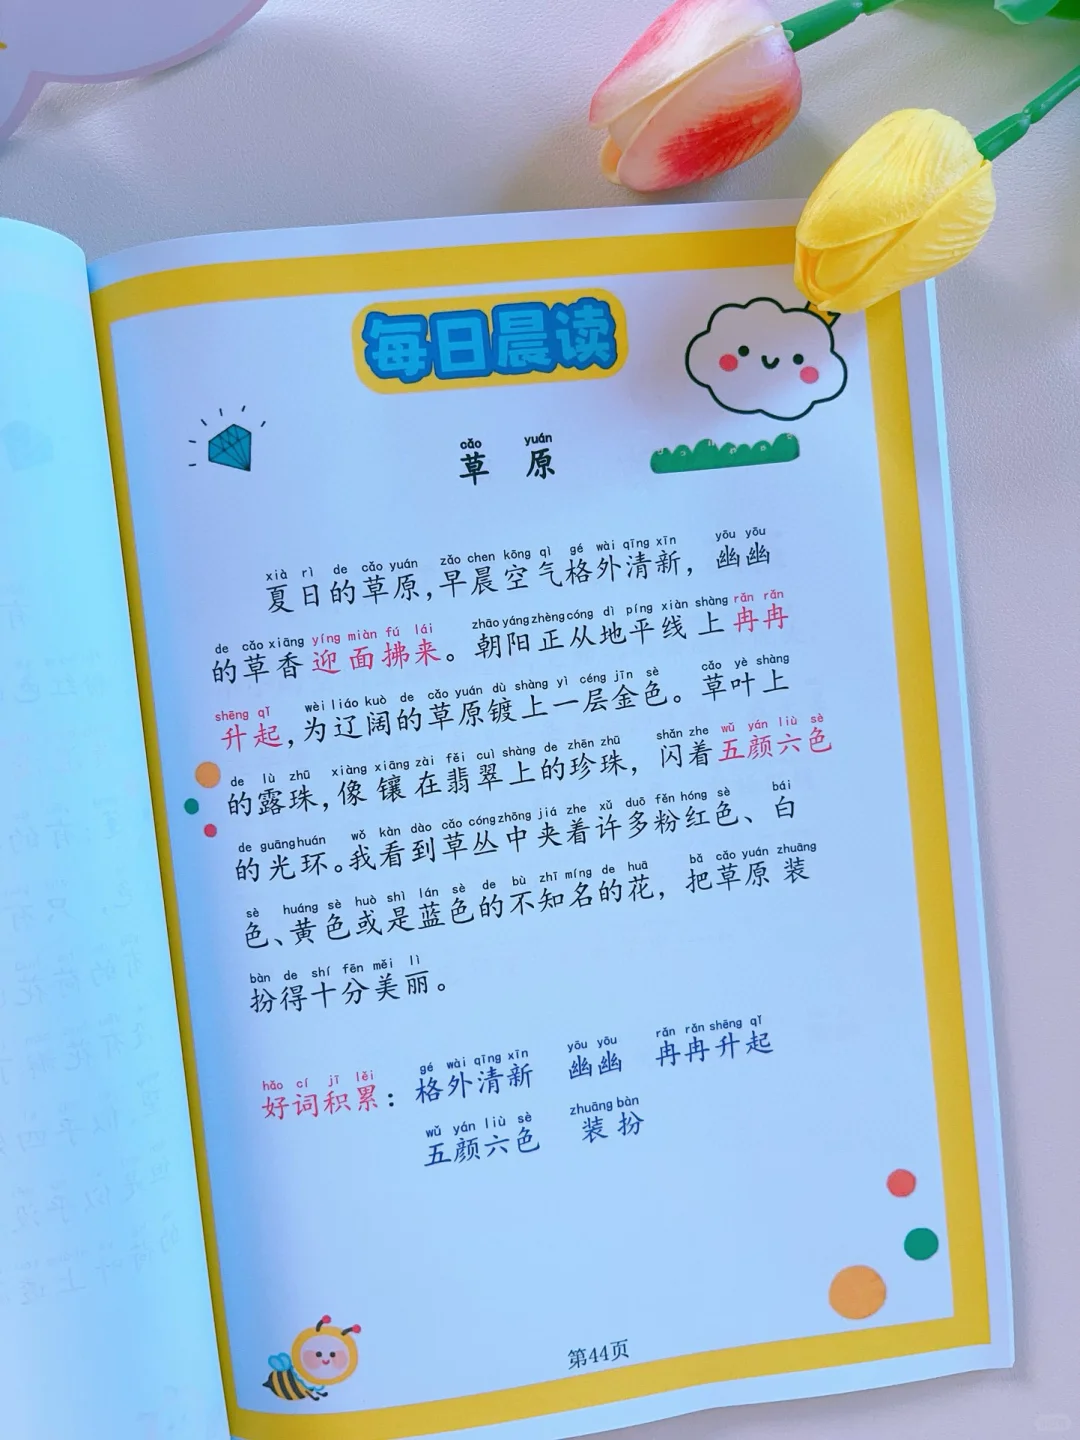 每日晨读
cǎo yuán
草 原
xià rì de cǎo yuán zǎo chen kōng qì gé wài qīng xīn yōu yōu
夏日的草原,早晨空气格外清新，幽幽
de cǎo xiāng yíng miàn fú lái zhāo yáng zhèng cóng dì píng xiàn shàng rǎn rǎn
的草香迎面拂来。朝阳正从地平线上冉冉
shēng qǐ wèi liáo kuò de cǎo yuán dù shàng yì céng jīn sè cǎo yè shàng
升起,为辽阔的草原镀上一层金色。草叶上
de lù zhū xiàng xiāng zài fěi cuì shàng de zhēn zhū shǎn zhe wǔ yán liù sè
的露珠,像镶在翡翠上的珍珠，闪着五颜六色
de guāng huán wǒ kàn dào cǎo cóng zhōng jiá zhe xǔ duō fěn hóng sè bái
的光环。我看到草丛中夹着许多粉红色、白
sè huáng sè huò shì lán sè de bù zhī míng de huā bǎ cǎo yuán zhuāng
色、黄色或是蓝色的不知名的花，把草原装
bàn de shí fēn měi lì
扮得十分美丽。
hǎo cí jī lěi gé wài qīng xīn yōu yōu rǎn rǎn shēng qǐ
好词积累：格外清新 幽幽 冉冉升起
wǔ yán liù sè zhuāng bàn
五颜六色 装扮
第44页